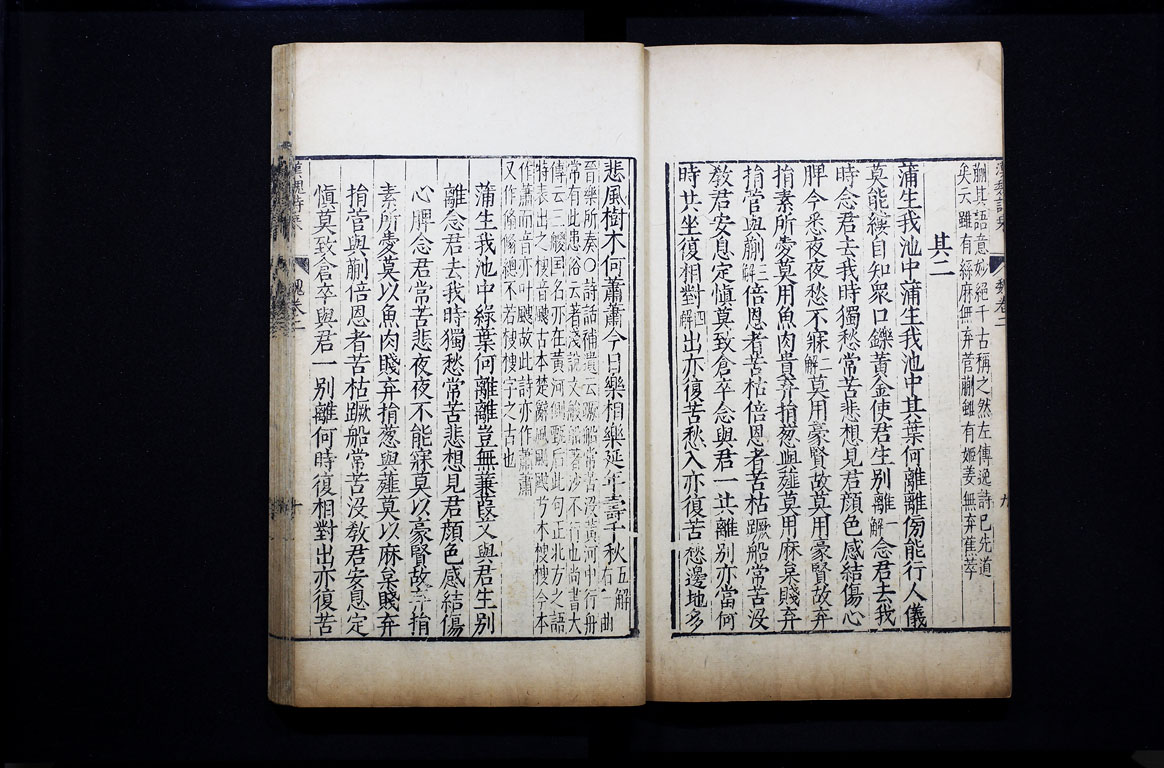 刪其語意妙絕千古稱之然左傳逸詩已先道
矣云雖有絲麻無弃菅蒯雖有姬姜無弃蕉萃
其二
蒲生我池中蒲生我池中其葉何離離傍能行人儀
莫能縷自知衆口鑠黃金使君生別離一解念君去我
時念君去我時獨愁常苦悲想見君顏色感結傷心
脾今悉夜夜愁不寐二解莫用豪賢故莫用豪賢故弃
捐素所愛莫用魚肉貴弃捐葱與薤莫用麻枲賤弃
捐菅與蒯三解倍恩者苦枯倍恩者苦枯蹶船常苦沒
敎君安息定愼莫致倉卒念與君一共離別亦當何
時共坐復相對四解出亦復苦愁入亦復苦愁邊地多
魏卷二
九
悲風樹木何蕭蕭今日樂相樂延年壽千秋五解右一曲
晉樂所奏○詩話補遺云蹶船常苦沒黃河中行舟
常有此患俗云著淺說文艘船著沙不行也尚書大
傳云三艘国名亦在黃河側甄后此句正北方之語
特表出之 古本楚辭風颾颾兮木梢梢今本
作蕭而音亦叶颾故此詩亦作蕭蕭
又作翛翛總不若梢梢字之古也
蒲生我池中綠葉何離離豈無蒹葭艾與君生別
離念君去我時獨愁常苦悲想見君顏色感結傷
心脾念君常苦悲夜夜不能寐莫以豪賢故弃捐
素所愛莫以魚肉賤弃捐葱與薤莫以麻枲賤弃
捐菅與蒯倍恩者苦枯蹶船常苦沒敎君安息定
愼莫致倉卒與君一別離何時復相對出亦復苦
漢魏詩
魏卷二
十